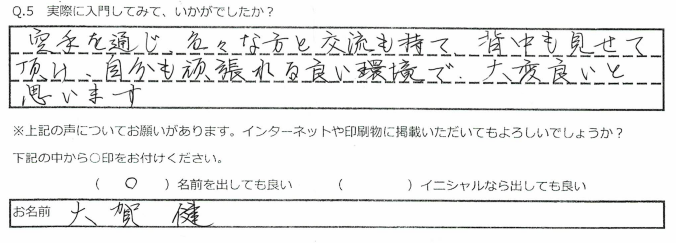 Q.5 実際に入門してみて、いかがでしたか？
空手を通じ、色々な方と交流も持て、背中も見せて
頂け、自分も頑張れる良い環境で、大変良いと
思います
※上記の声についてお願いがあります。インターネットや印刷物に掲載いただいてもよろしいでしょうか？
下記の中から○印をお付けください。
（ ○ ）名前を出しても良い （ ）イニシャルなら出しても良い
お名前 大賀 健